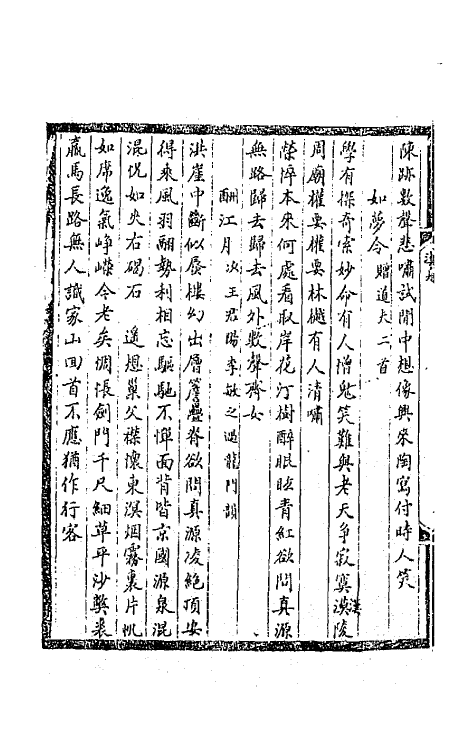 陳跡數聲悲嘯試閒中想像興來陶寫付時人笑
如夢令贈道夫二首
學有探奇索妙命有人憎鬼笑難與老天爭寂寞漢陵
周廟權要權要林樾有人清嘯
榮悴本來何處看取岸花汀樹醉眼眩青紅欲問真源
無路歸去歸去風外數聲齊女
酬江月次王君陽李敏之過龍門韻
洪崖中斷似蜃樓幻出層簷疊脊欲問真源凌絕頂安
得來風羽翮勢利相忘驅馳不憚面背皆京國源泉混
混況如夾右碣石 遥想巢父襟懷東溟烟霧裹片帆
如席逸氣崢嶸今老矣惆悵劍門千尺細草平沙弊裘
羸馬長路無人識家山回首不應猶作行客